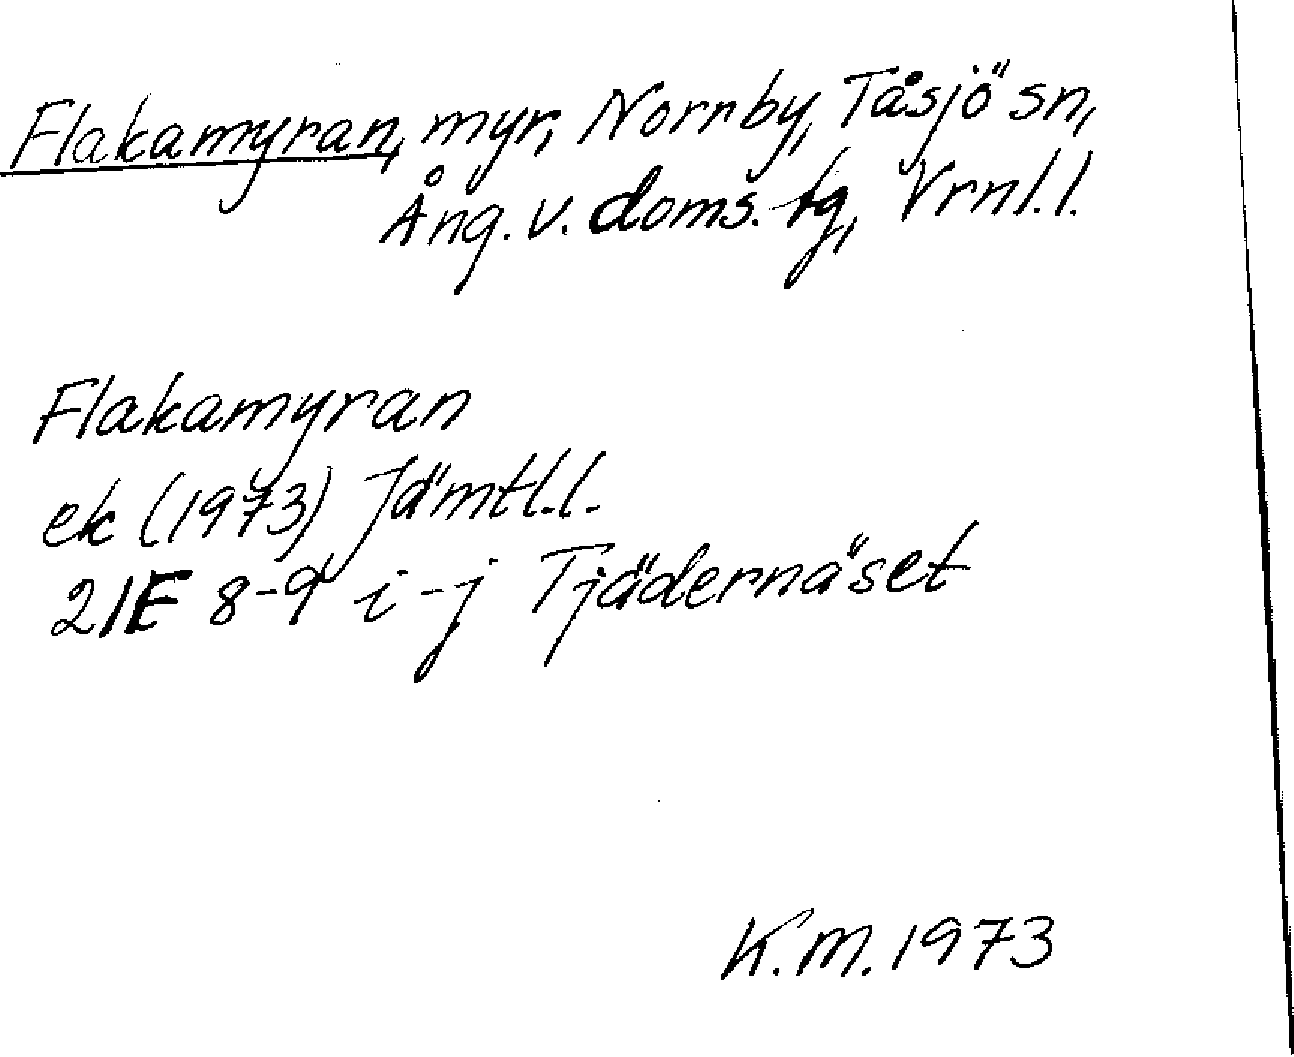 Flakamyran, myr, Norrby, Tåsjö sn,
Ång. v. doms.tg, Vrnl.l.
Flakamyran
ek (1973) Jämtl.l.
21E 8-9 i-j Tjädernäset
K.M. 1973